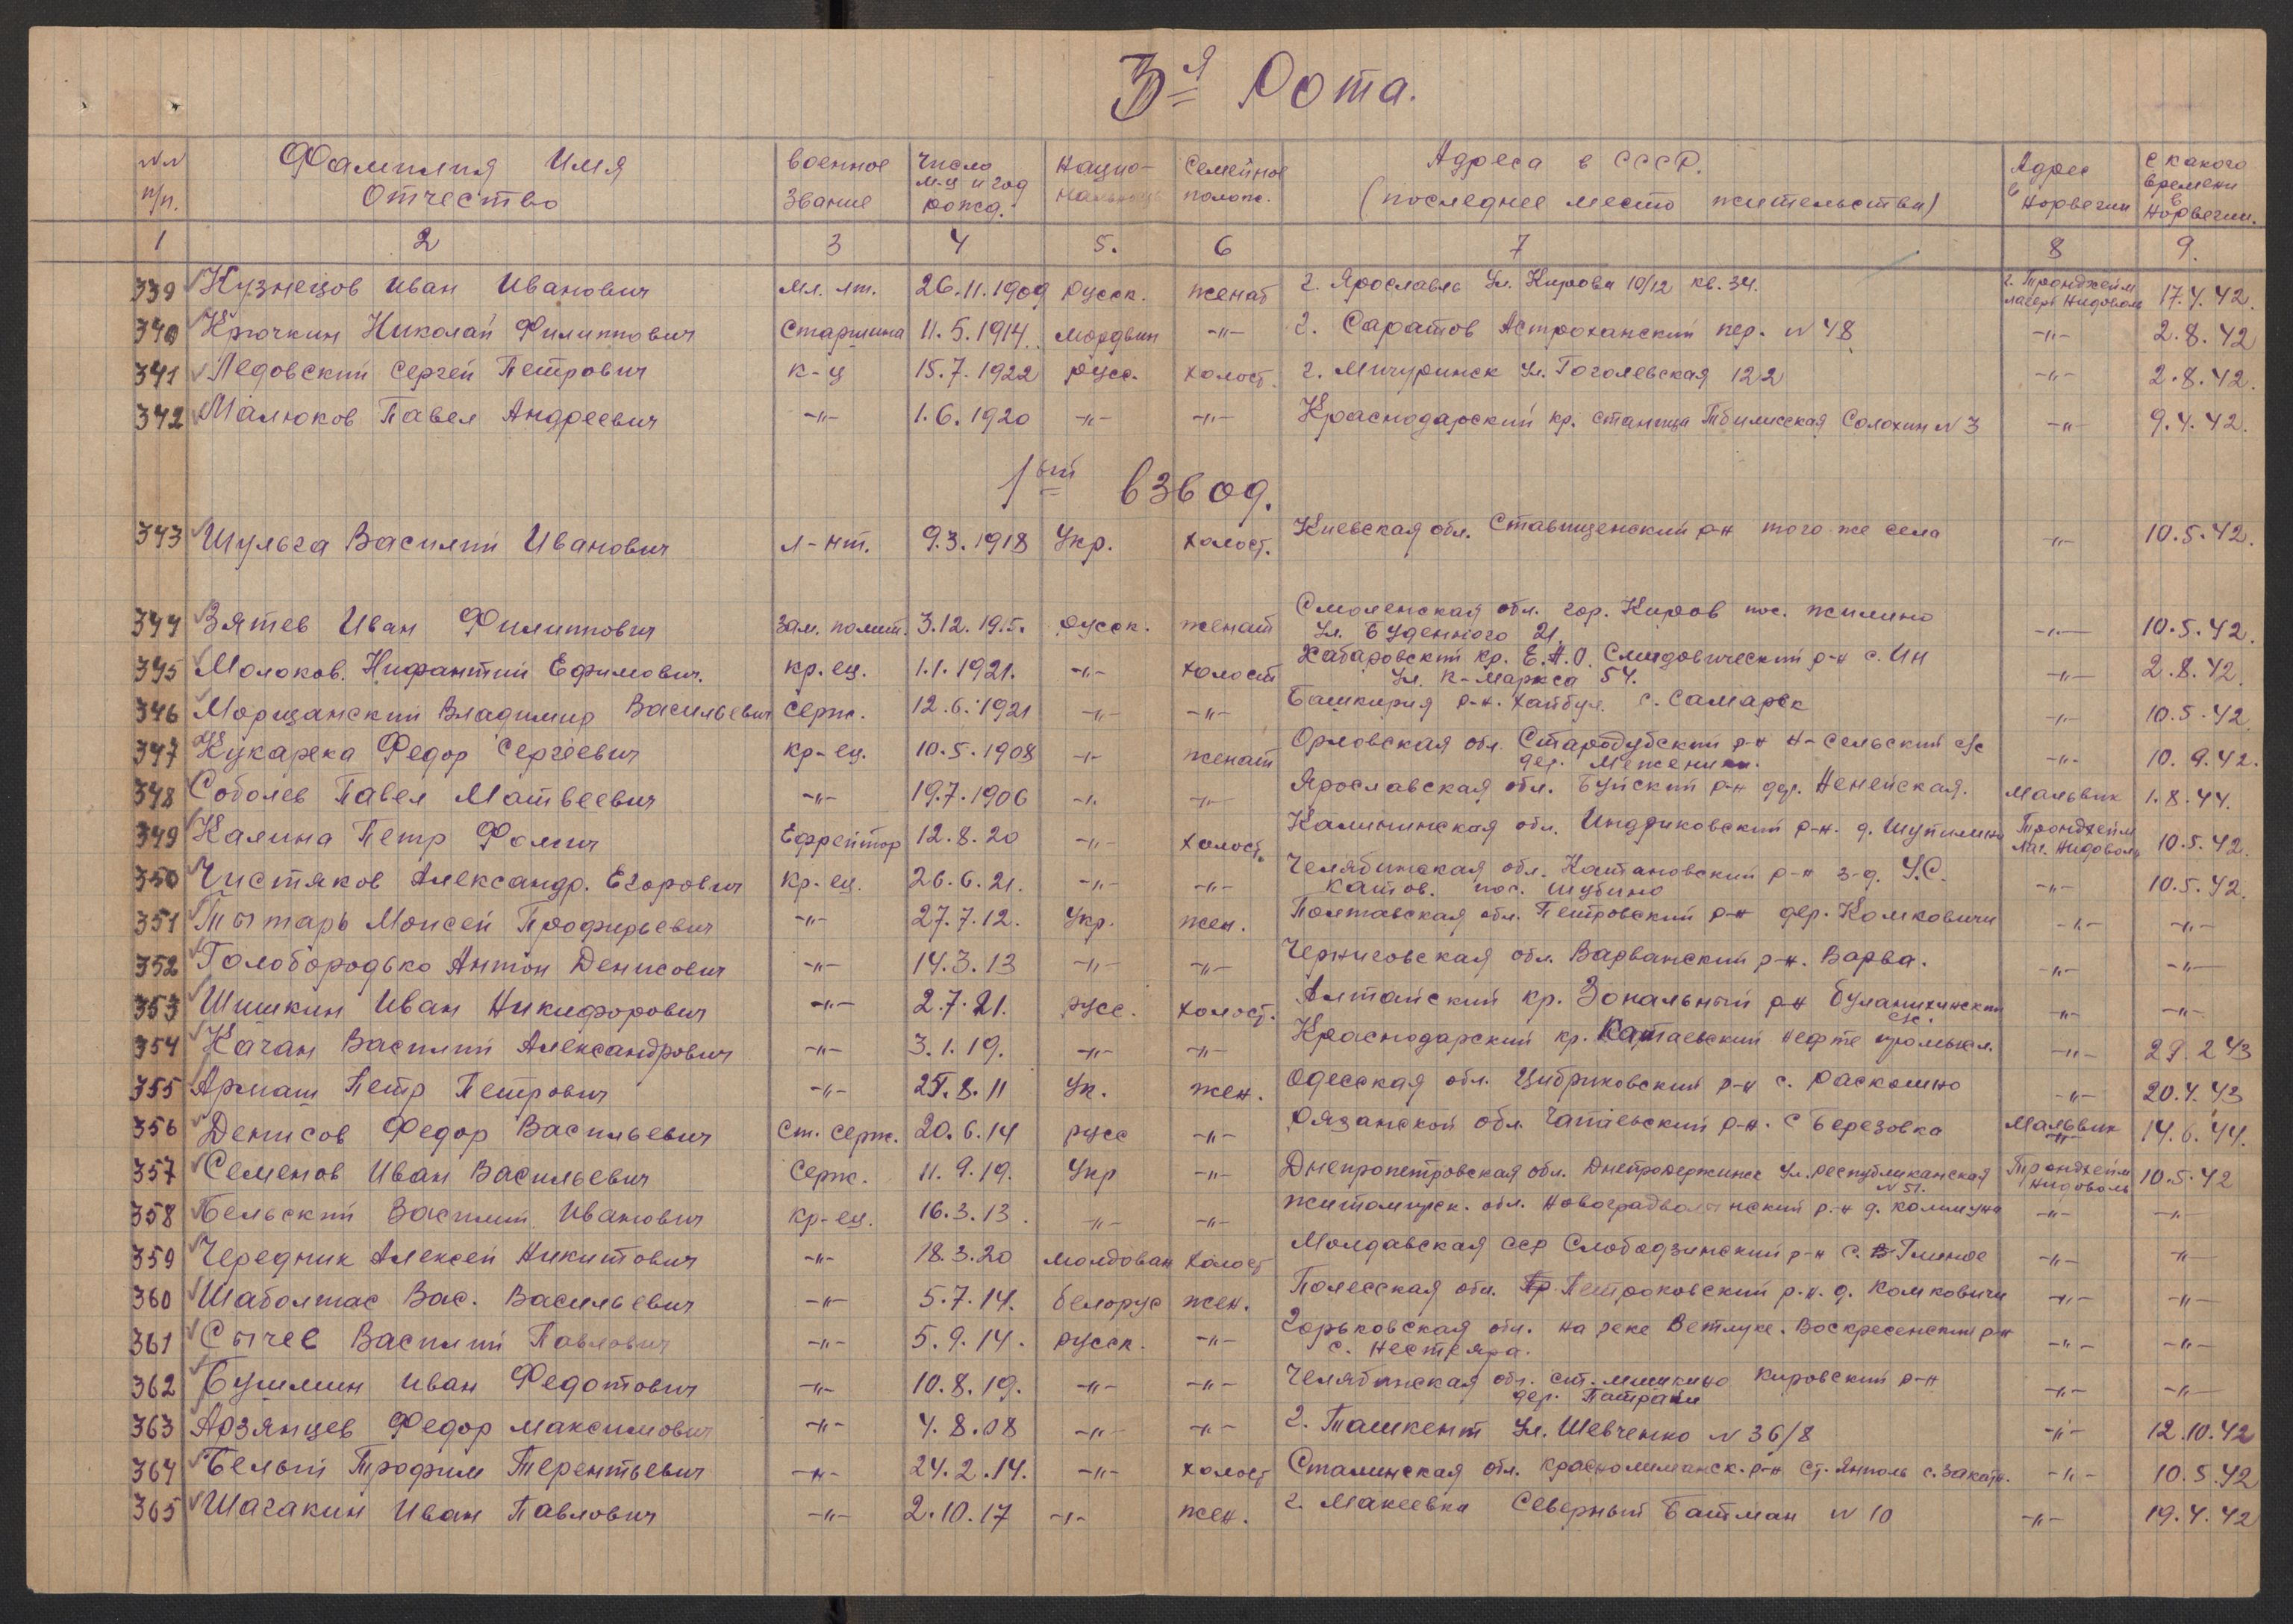 3я Рота.
№№ п/п. Фамилия Имя Отчество военное звание число м-ц и год рожд. Нацио- Семейное полож. Адреса в СССР. (последнее место жительства) Адрес в Норвегии с какого времени в Норвегии.
1 2 3 4 5. 6 7 8 9.
339 Кузнецов Иван Иванович Мл. лт. 26.11.1909 русск. женат г. Ярославль Ул. Кирова 10/12 кв. 34. г. Тронджейм лагерь Нидоволь 17.4.42.
340 Крючкин Николай Филиппович Старшина 11.5.1914. мордвин -"- г. Саратов Астроханский пер. №48 -"- 2.8.42
341 Ледовский Сергей Петрович к-ц 15.7.1922 русс. холост. г. Мичуринск Ул. Гоголевская 122 -"- 2.8.42.
342 Малюков Павел Андреевич -"- 1.6.1920 -"- -"- Краснодарский кр. станица Тбилисская Солохин №3 -"- 9.4.42.
1ый взвод.
343 Шульга Василий Иванович л-нт. 9.3.1918 Укр. холост. Киевская обл. Ставищенский р-н того же села -"- 10.5.42.
344 Зятев Иван Филиппович зам. полит. 3.12.19.5. русск. женат Смоленская обл. гор. Киров пос. жилино -"- 10.5.42.
Ул. Буденного 21.
345 Молоков. Нифантий Ефимович. кр.ец. 1.1.1921. -"- холост Хабаровский кр. Е.А.О. Смидовический р-н с. Ин -"- 2.8.42.
Ул. К-Маркса 54.
346 Морщанский Владимир Васильевич Серж. 12.6.1921 -"- -"- Башкирия р-н. Хайбул. с. Самарск -"- 10.5.42
347 Кукарека Федор Сергеевич кр-ец. 10.5.1908 -"- женат Орловская обл. Стародубский р-н Н-сельский с/с -"- 10.9.42.
дер. Меженики.
348 Соболев Павел Матвеевич -"- 19.7.1906 -"- -"- Ярославская обл. Буйский р-н дер. Ненейская. Мальвик 1.8.44.
349 Калина Петр Фомич Ефрейтор 12.8.20 -"- холост. Калининская обл. Индриковский р-н. д. Шутилино Тронджейм лаг. Нидоволь 10.5.42.
350 Чистяков Александр. Егорович Кр-ец. 26.6.21. -"- -"- Челябинская обл. Катановский р-н з-д. У.С. -"- 10.5.42.
катов. пос. Шубино
351 Пытарь Моисей Профирьевич -"- 27.7.12. Укр. жен. Полтавская обл. Петровский р-н дер. Комковичи -"- -"-
352 Голобородько Антон Денисович -"- 14.3.13 -"- -"- Черниговская обл. Варванский р-н. Варва. -"- -"-
353 Шишкин Иван Никифорович -"- 2.7.21. русс. холост. Алтайский кр. Зональный р-н Буланихинский с/с. -"- -"-
354 Качан Василий Александрович -"- 3.1.19. -"- -"- Краснодарский кр. нефте промысл. -"- 29.2.43
355 Армаш Петр Петрович -"- 25.8.11 Ук. жен. Одесская обл. Цибриковский р-н с. Раскошно -"- 20.4.43
356 Денисов Федор Васильевич Ст. серж. 20.6.14 русс -"- Рязанской обл. Чапаевский р-н. с Березовка Мальвик 14.6.44.
357 Семенов Иван Васильевич Серж. 11.9.19. Укр -"- Днепропетровская обл. Днепродержинск Ул. республиканская №51. Тронджейм Нидоволь 10.5.42
358 Бельский Василий Иванович кр-ец. 16.3.13. -"- -"- Житомирск. обл. Новоградволынский р-н д. коммуна -"- -"-
359 Чередник Алексей Никитович -"- 18.3.20 молдован холост Молдавская сср Слободзинский р-н с. Глиное -"- -"-
360 Шаболтас Вас. Васильевич -"- 5.7.14. белорус жен. Полесская обл. Петроковский р-н. д. Комковичи -"- -"-
361 Сычев Василий Павлович -"- 5.9.14. русск. -"- Горьковская обл. на реке Ветлуге. Воскресенский р-н -"- -"-
с. Нестяра.
362 Бушмин Иван Федотович -"- 10.8.19. -"- -"- Челябинская обл. ст. мишкино Кировский р-н -"- -"-
дер. Патраки
363 Арзянцев Федор Максимович -"- 4.8.08 -"- -"- г. Ташкент Ул. Шевченко №36/8 -"- 12.10.42
364 Белый Трофим Терентьевич -"- 24.2.14. -"- холост Сталинская обл. краснолиманск. р-н ст. Янполь с. Закотн. -"- 10.5.42
365 Шагакин Иван Павлович -"- 2.10.17 -"- жен. г. Макеевка Северный Батман №10 -"- 19.4.42